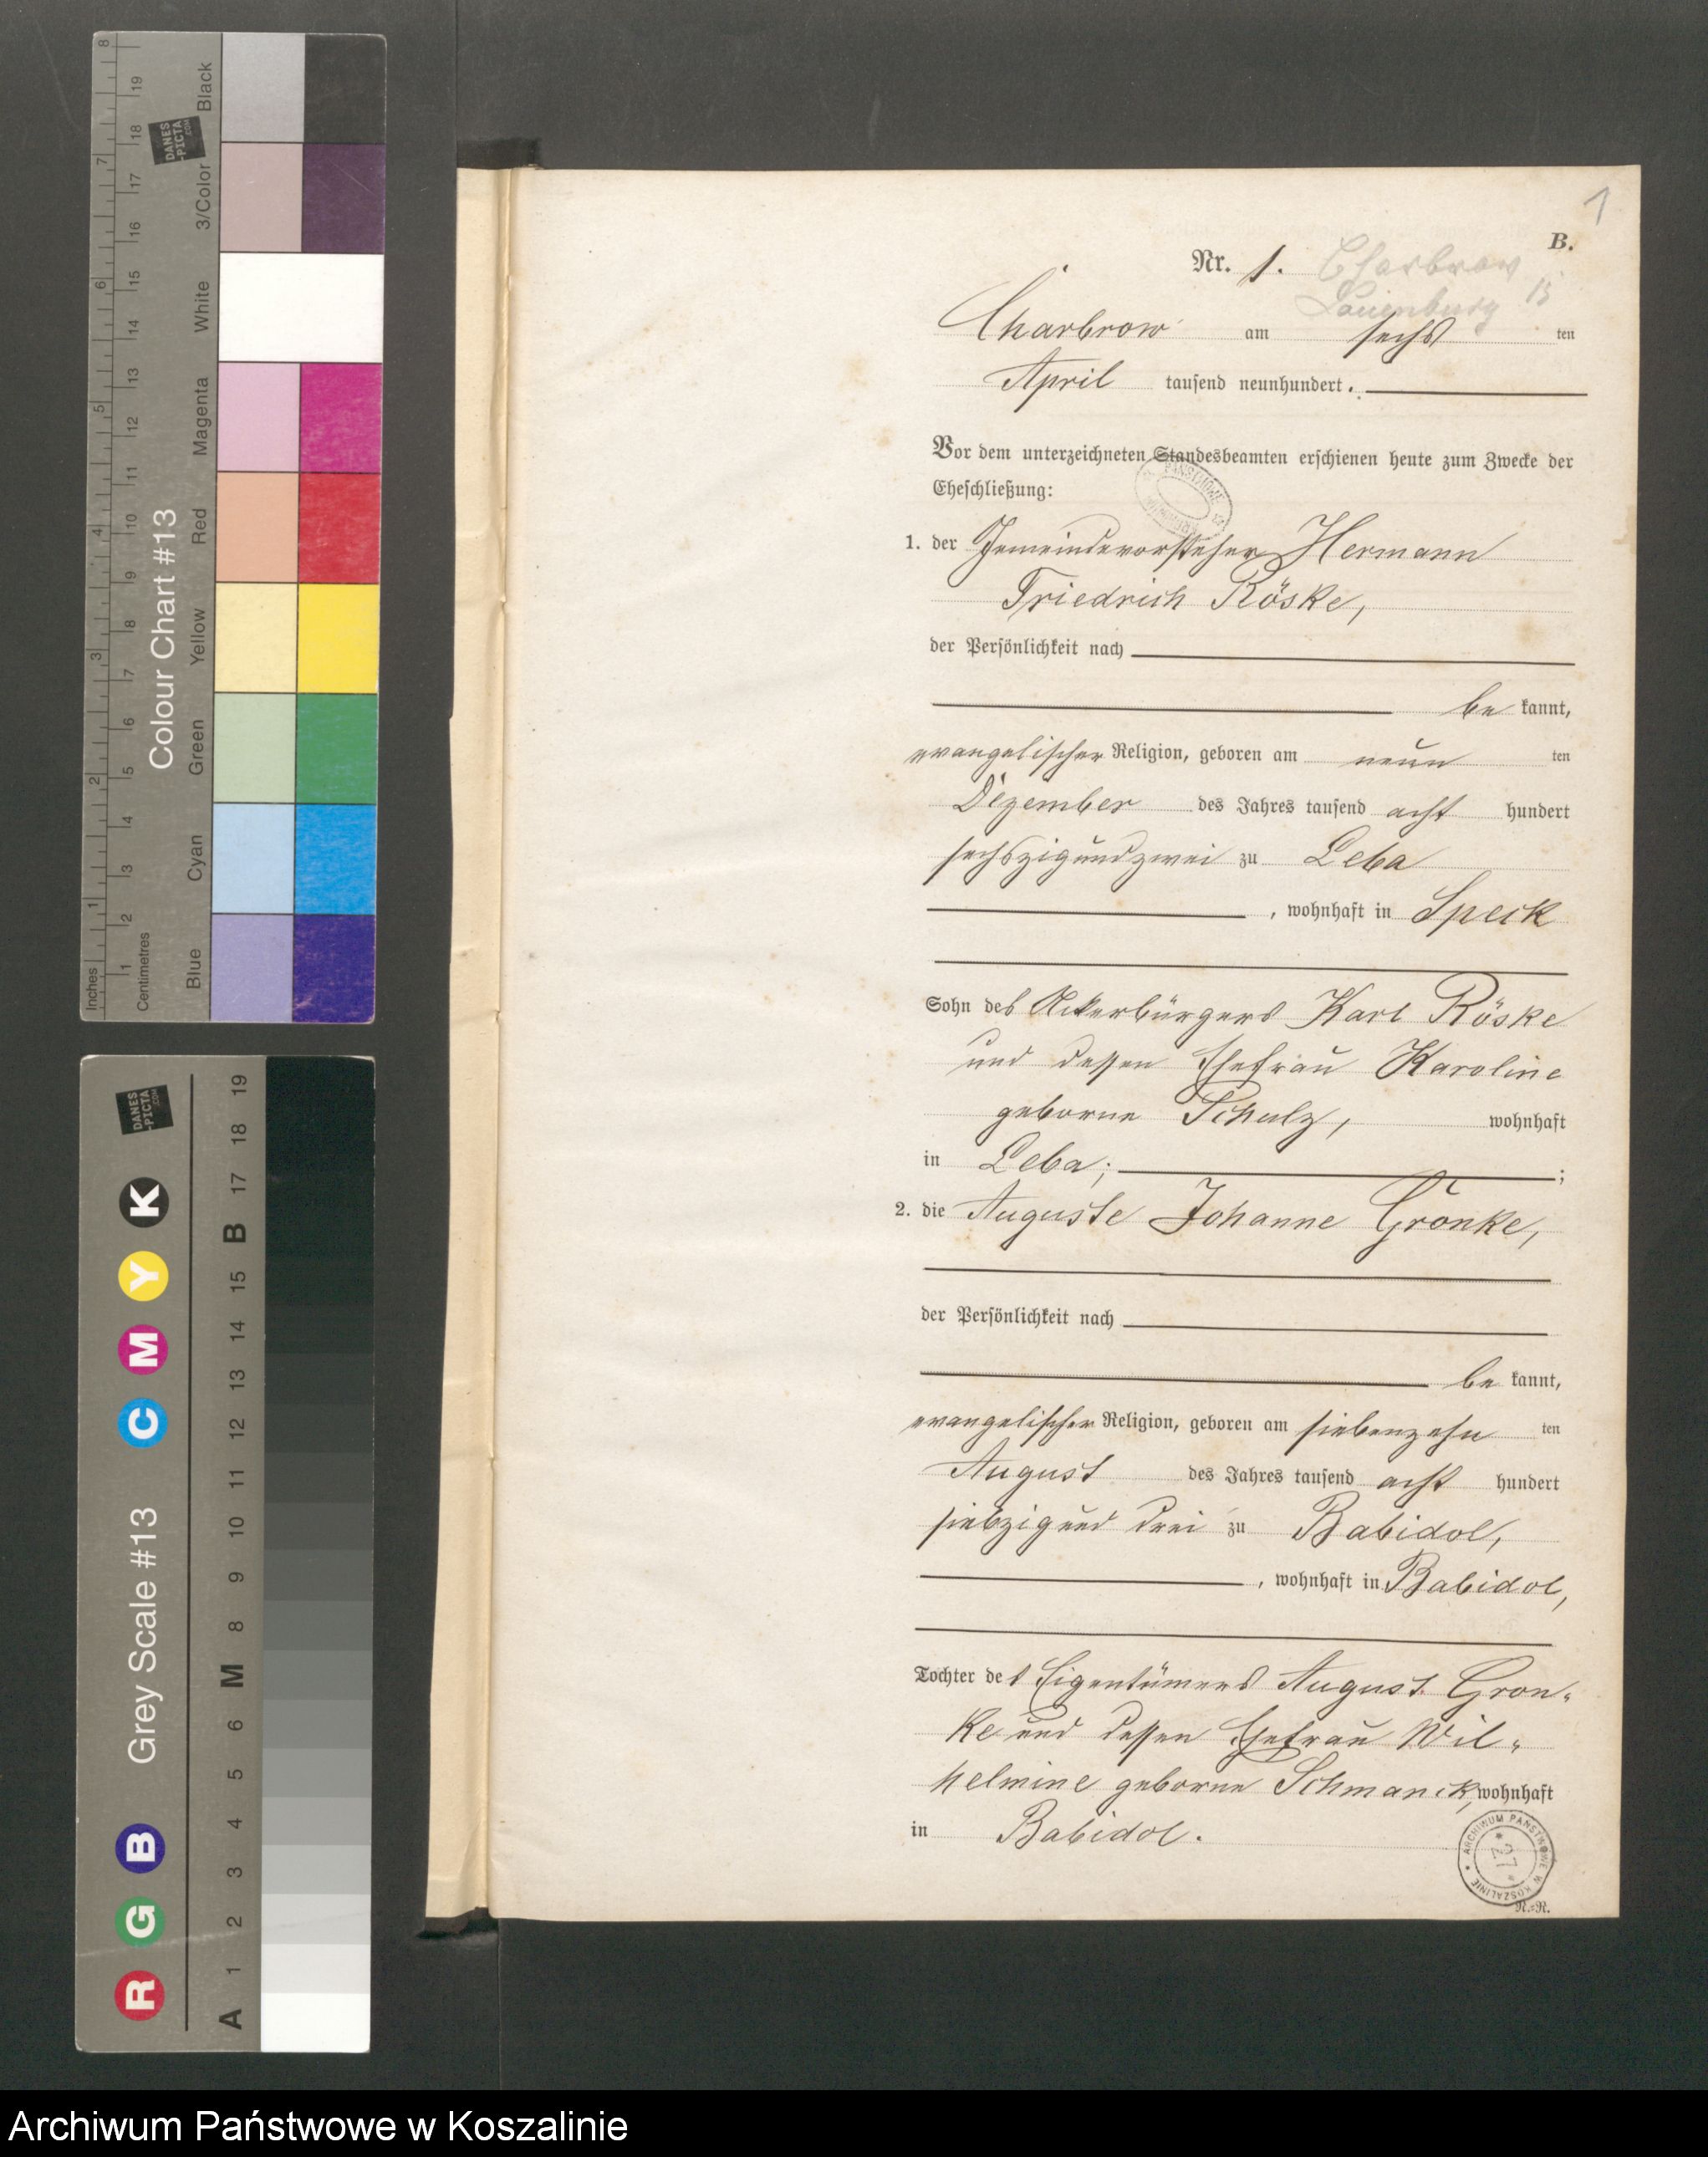 1
B.
Nr. 1. Charbrow
Lauenburg
Charbrow am sechs ten
April tausend neunhundert.
Vor dem unterzeichneten Standesbeamten erschienen heute zum Zwecke der
Eheschließung:
1. der Gemeindevorsteher Hermann
Friedrich Röske,
der Persönlichkeit nach
be kannt,
evangelischer Religion, geboren am neun ten
Dezember des Jahres tausend acht hundert
sechszigundzwei zu Leba
, wohnhaft in Speck
Sohn des Ackerbürgers Karl Röske
und dessen Ehefrau Karoline
geborne Schulz, wohnhaft
in Leba; ;
2. die Auguste Johanne Gronke,
der Persönlichkeit nach
be kannt,
evangelischer Religion, geboren am siebenzehn ten
August des Jahres tausend acht hundert
siebzigund drei zu Babidol,
, wohnhaft in Babidol,
Tochter des Eigentümers August Gron-
ke und dessen Ehefrau Wil-
helmine geborne Schmanck, wohnhaft
in Babidol.
ARCHIWUM PAŃSTWOWE W KOSZALINIE
27
N.=R.
Inches
1 2 3 4 5 6 7 8
Centimetres
1 2 3 4 5 6 7 8 9 10 11 12 13 14 15 16 17 18 19
Colour Chart #13
Blue Cyan Green Yellow Red Magenta White 3/Color Black
DANES
-PICTA
.COM
Grey Scale #13
R G B C M Y K
A 1 2 3 4 5 6 M 8 9 10 11 12 13 14 15 B 17 18 19
DANES
-PICTA
.COM
Archiwum Państwowe w Koszalinie